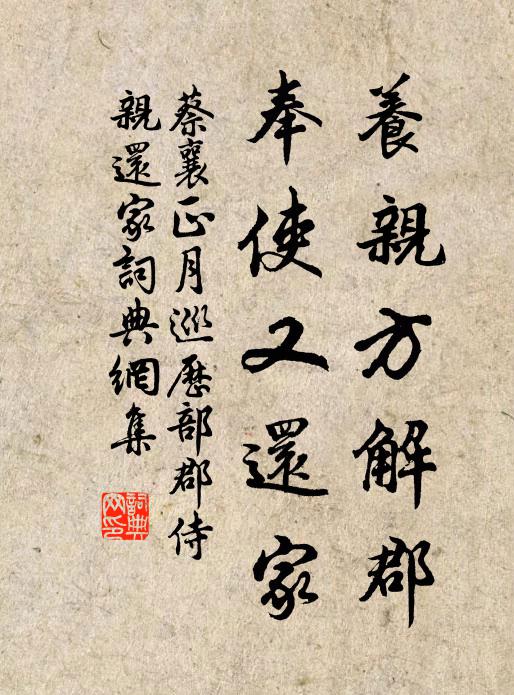 養親方解郡
奉使又還家
蔡襄正月巡歷部郡侍
親還家詞典網集
詞典网印